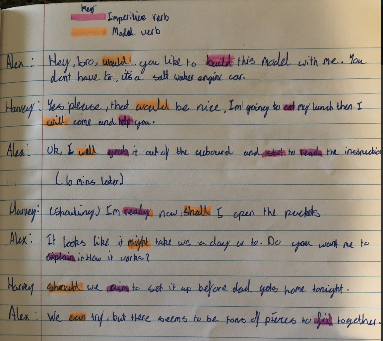 Key
Imperitive verb
Modal verb
Alex: Hey, bro, would you like to build this model with me. You
dont have to, its a salt water engine car.
Harvey: Yes please, that would be nice, Im going to eat my lunch then I
will come and help you.
Alex: Ok I will grab it out of the cubourd and start to read the instructions
(6 mins later)
Harvey: (shouting) Im ready now shall I open the packets
Alex: It looks like it might take us a day or to. Do you want me to
explain how it works?
Harvey should we aim to set it up before dad gets home tonight.
Alex: We can try, but there seems to be tons of pieces to together.